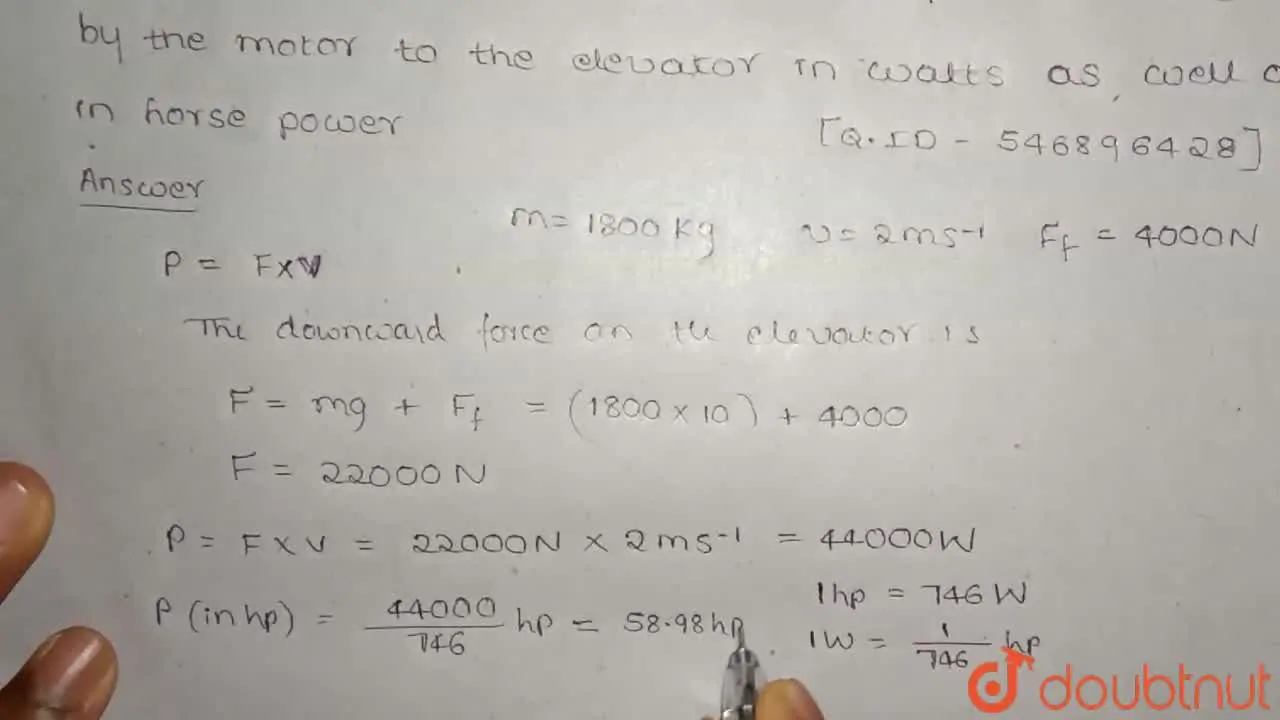 by the motor to the elevator in watts as well
in horse power
[Q.ID - 546896428]
Answer
m = 1800 Kg v = 2 ms⁻¹ F_f = 4000N
P = F×V
The downward force on the elevator is
F = mg + F_f = (1800 × 10) + 4000
F = 22000 N
P = F × V = 22000N × 2 ms⁻¹ = 44000W
1hp = 746 W
P (in hp) = 44000/746 hp = 58.98 hp
1W = 1/746 hp
doubtnut